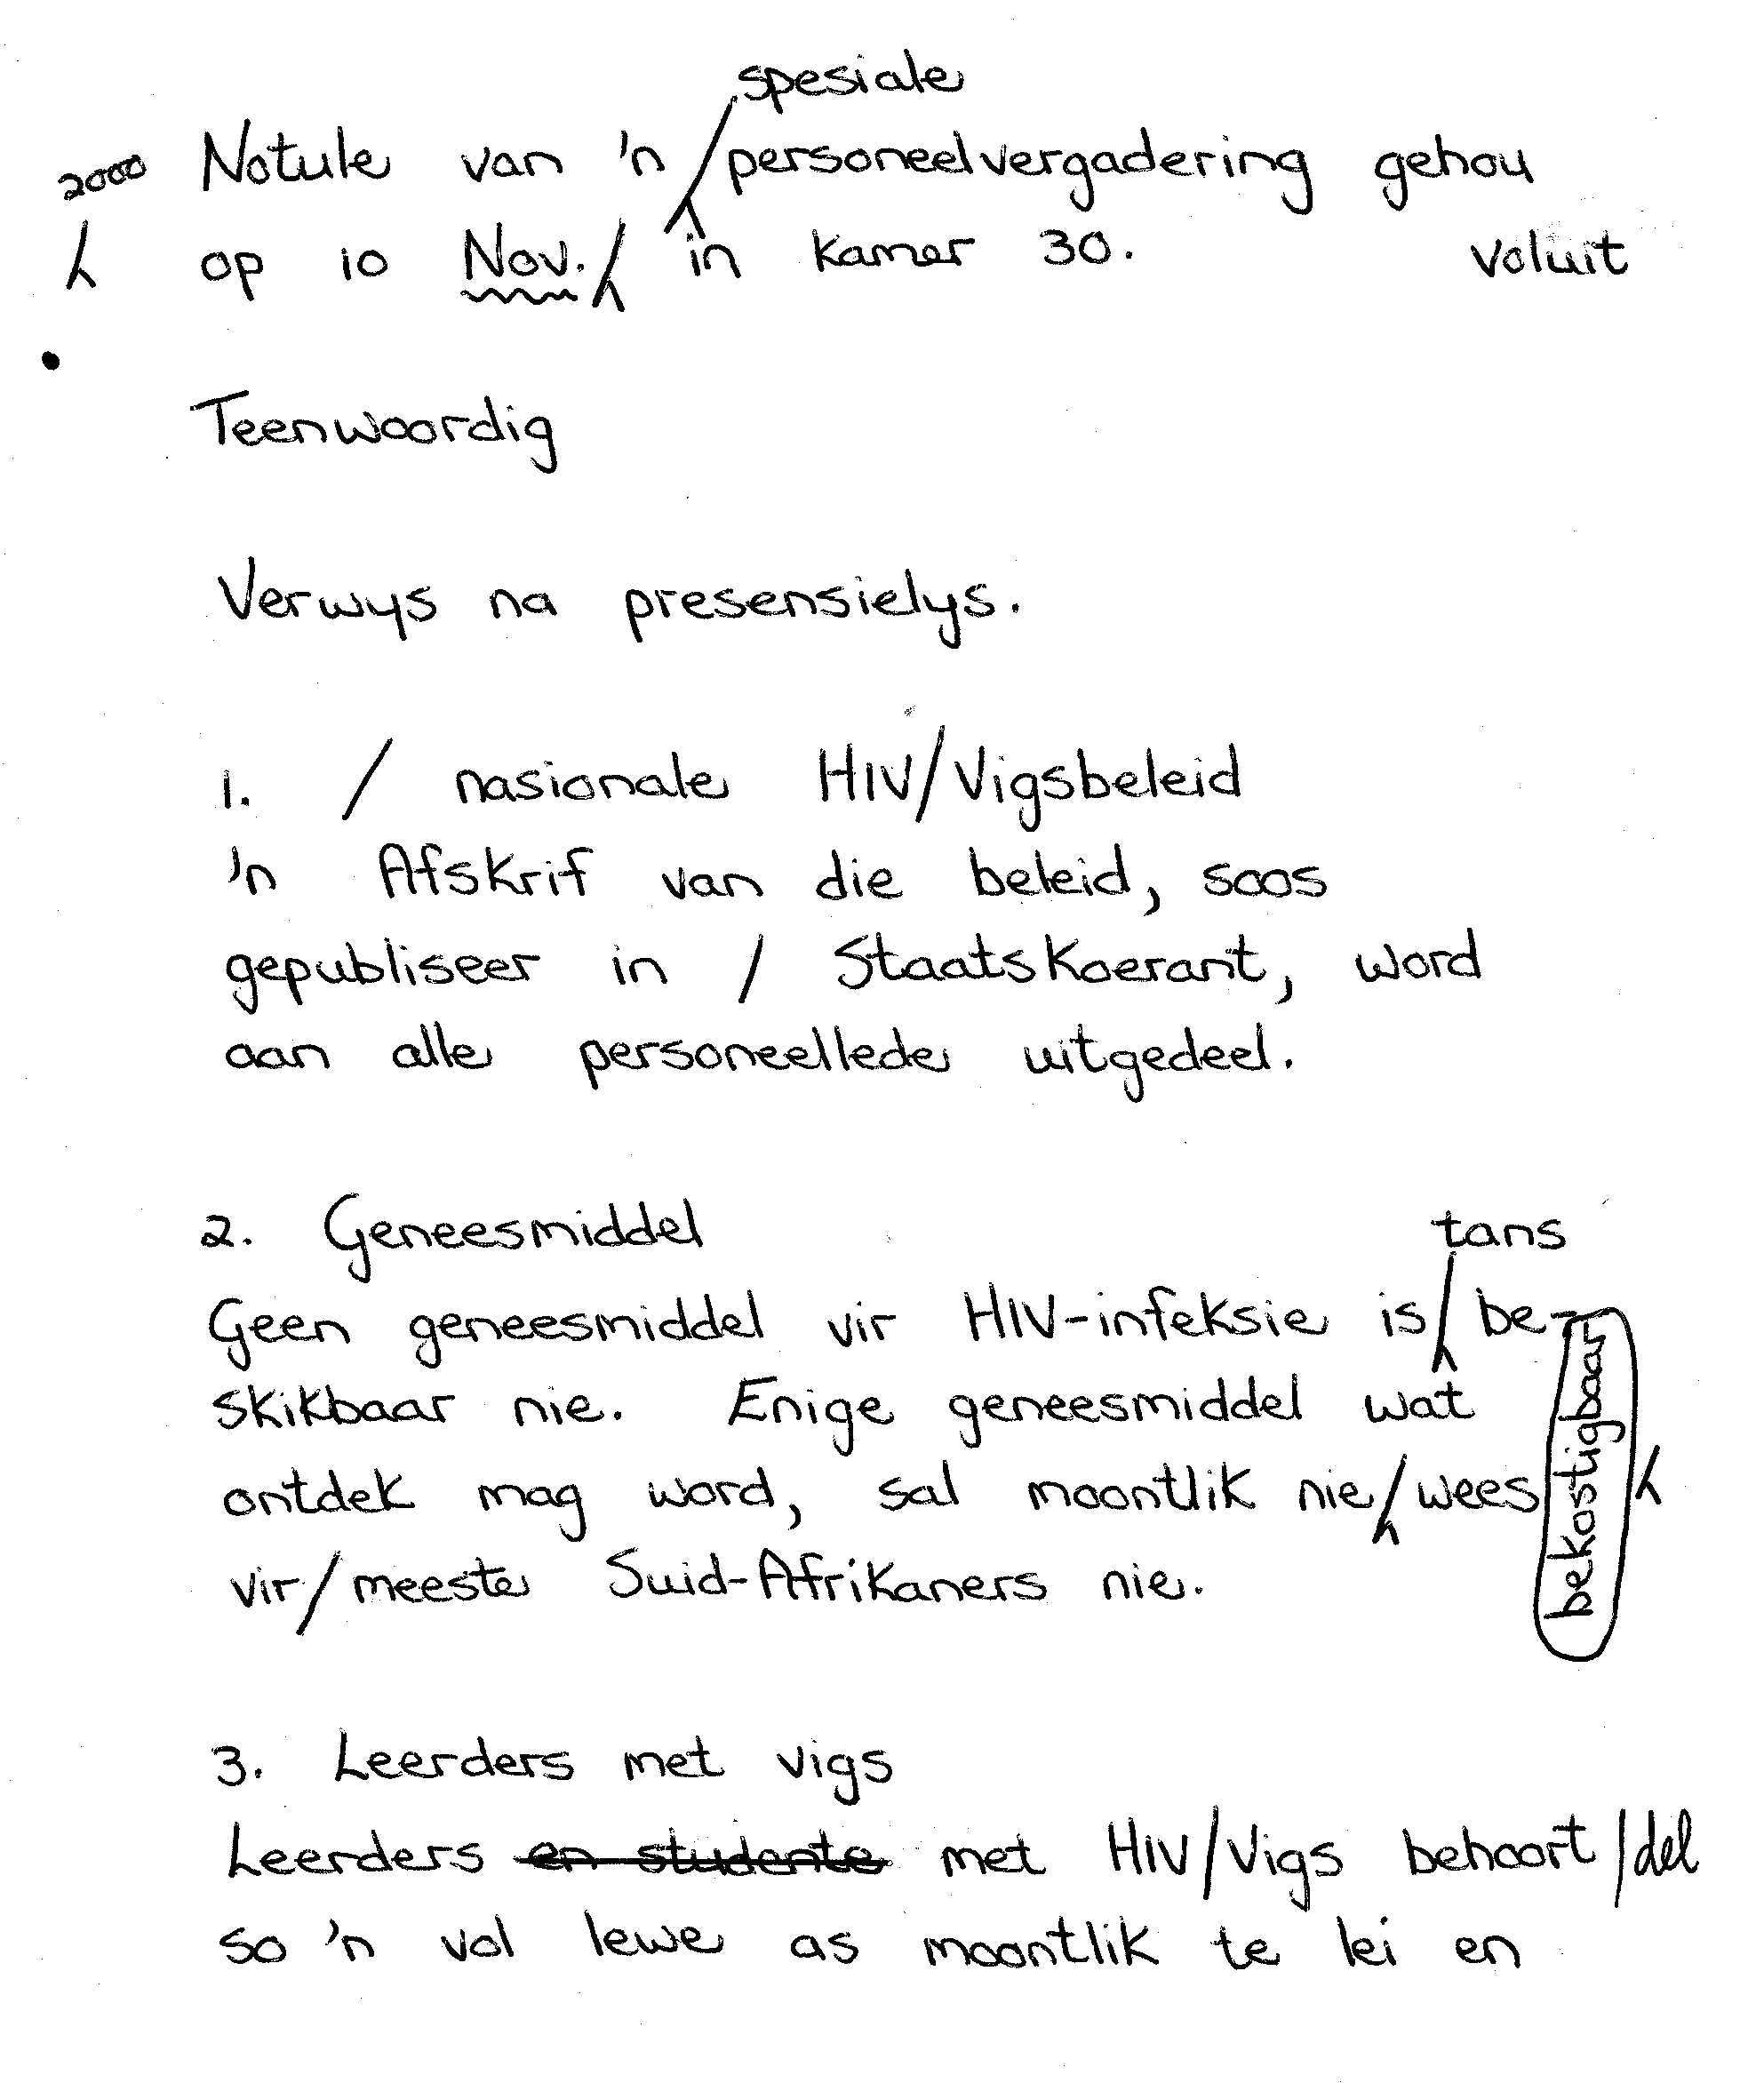 spesiale
2000 Notule van 'n / personeelvergadering gehou
op 10 Nov. / in kamer 30. voluit
Teenwoordig
Verwys na presensielys.
1. / nasionale HIV/Vigsbeleid
'n Afskrif van die beleid, soos
gepubliseer in / Staatskoerant, word
aan alle personeellede uitgedeel.
2. Geneesmiddel tans
Geen geneesmiddel vir HIV-infeksie is / be-
skikbaar nie. Enige geneesmiddel wat
ontdek mag word, sal moontlik nie / wees
bekostigbaar
vir / meeste Suid-Afrikaners nie.
3. Leerders met vigs
Leerders en studente met HIV/Vigs behoort /del
so 'n vol lewe as moontlik te lei en